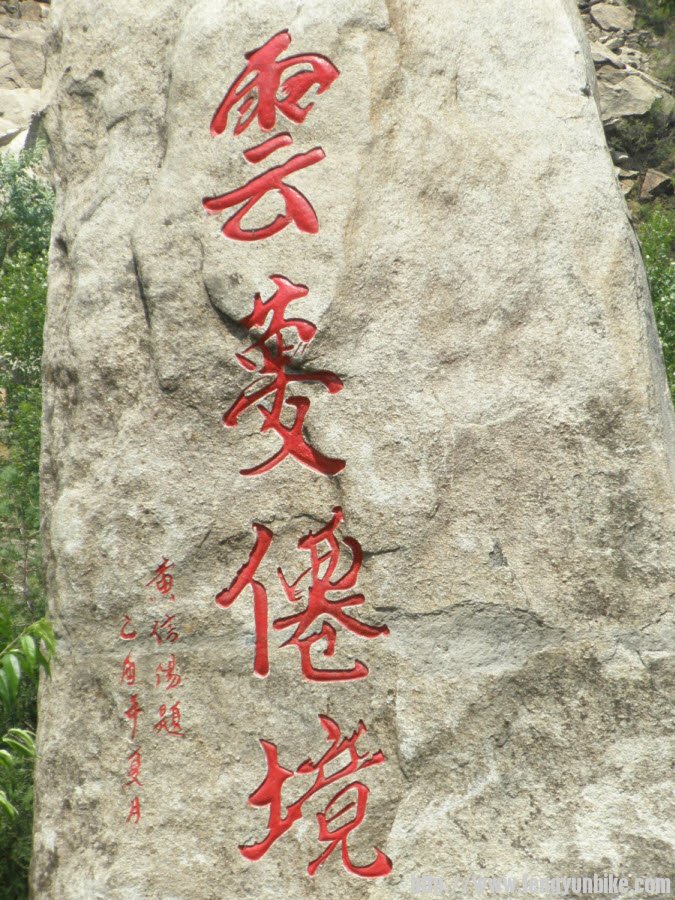 雲蒙僊境
黄信陽題
乙酉年夏月
http://www.fengyunbike.com